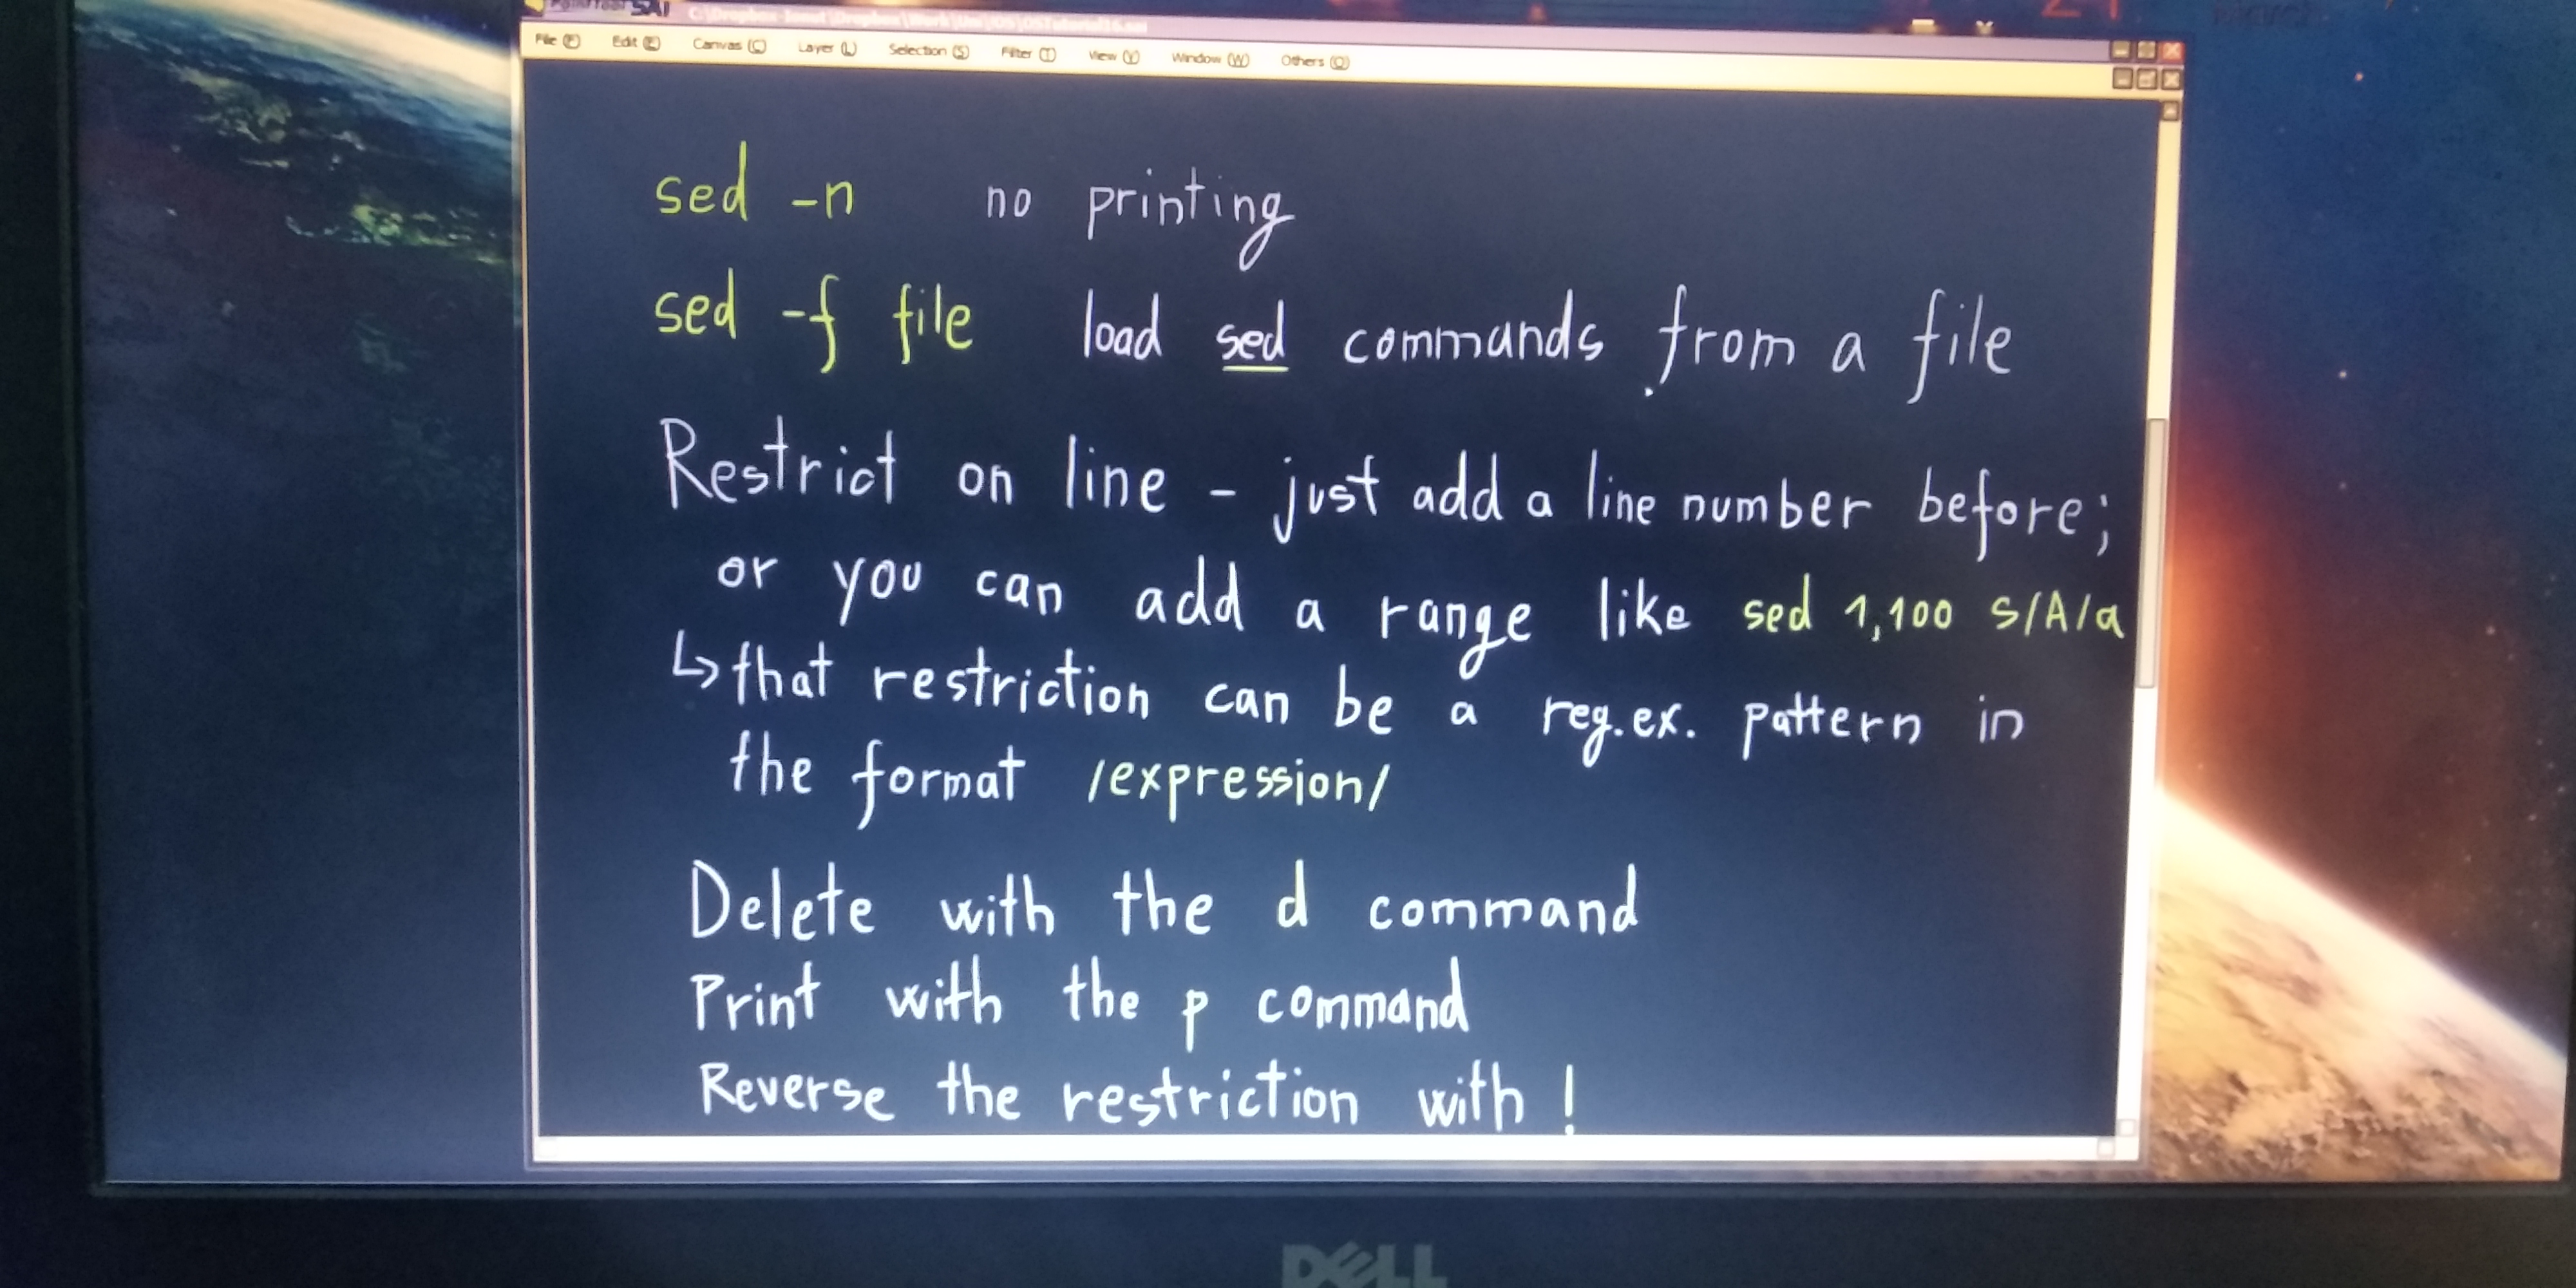 SAI
File (F) Edit (E) Canvas (C) Layer (L) Selection (S) Filter (T) View (V) Window (W) Others (O)
sed -n no printing
sed -f file load sed commands from a file
Restrict on line - just add a line number before;
or you can add a range like sed 1,100 s/A/a
↳ that restriction can be a reg.ex. pattern in
the format /expression/
Delete with the d command
Print with the p command
Reverse the restriction with !
DELL